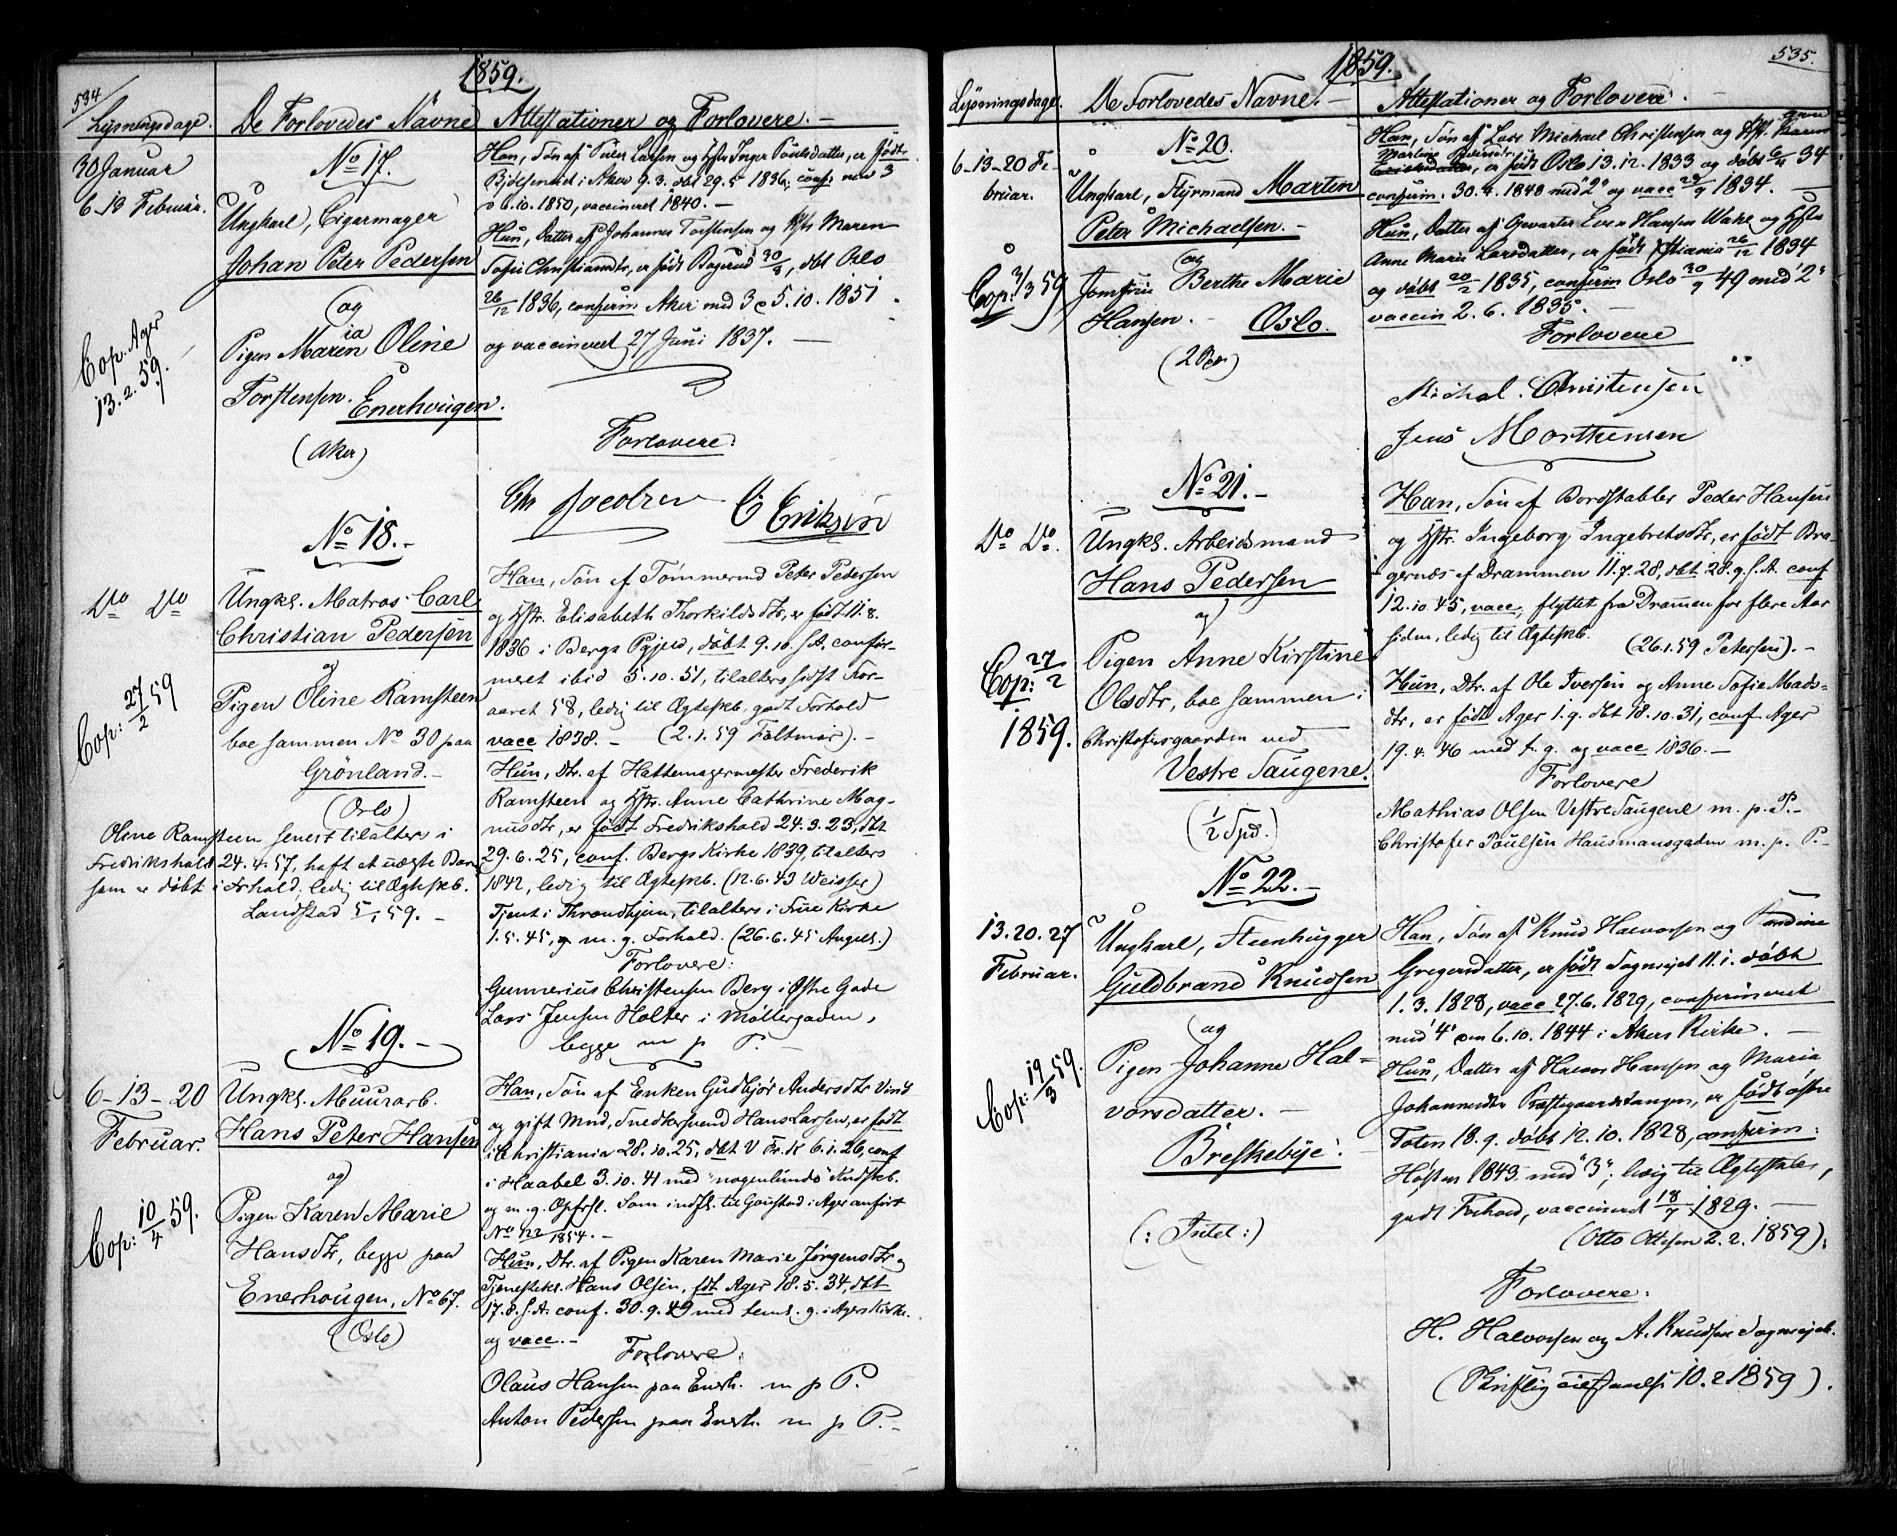 534
1859.
Lysningsdage. De Forlovedes Navne Attestationer og Forlovere. -
30 Januar
6-13 Februar.
No 17.
Ungkarl, Cigarmager
Johan Peter Pedersen
og
Pigen Maren Oline
ia
Torstensen. Enerhougen.
(Aker)
Cop. Ager
13.2.59.
Han, Søn af Peder Larsen og Hstr Inger Poulsdatter, er født
i Aker 9.3. dbt 29.5 1836, conf. med 3
6.10.1850, vaccineret 1840. -
Hun, Datter af Johannes Torstensen og Hstr Maren
Sofie Christiansdtr, er født Bogerud 30/3, dbt Oslo
26/12 1836, confirm. Aker med 3 5.10.1851.
og vaccineret 27 Juni 1837. -
Forlovere:
Chr Jacobsen O Eriksen
No 18. -
Do Do
Ungkl. Matros Carl
Christian Pedersen
og
Pigen Oline Ramsteen
boe sammen No 30 paa
Grönland. -
(Oslo)
Cop: 27/2 59
Oline Ramsteen senest tilalters i
Fredrikshald 24.4.57, haft et uægte Barn
som er döbt i Frhald, ledig til Ægteskb.
Landstad 5/1 59. -
Han, Søn af Tømmermd Peter Pedersen
og Hstr. Elisabeth Thorkildsdtr, er født 11.8.
1836 i Bergs Pgjeld, döbt 9.10. s.A. confir-
meret ibid 5.10.51, tilalters sidst For-
aaret 58, ledig til Ægteskb, godt Forhold
vacc 1838. - (2.1.59 Faltmar). -
Hun, Dtr. af Hattemagermester Frederik
Ramsteen og Hstr. Anne Cathrine Mag-
nusdtr, er født Fredrikshald 24.3.23, dbt
29.6.25, conf. Bergs Kirke 1839, tilalters
1842, ledig til Ægteskb. (12.6.43 Weisser)
Tjent i Throndhjem, tilalters i Frue Kirke
1.5.45, og m. g. Forhold. (26.6.45 Angell.)
Forlovere:
Gunnerius Christensen Berg i Østre Gade
Lars Jensen Holter i Møllergaden,
begge m p P. -
No 19. -
6-13-20
Februar.
Ungkl. Muurarb.
Hans Peter Hansen
og
Pigen Karen Marie
Hansdtr, begge paa
Enerhougen, No 67.
(Oslo)
Cop: 10/4 59.
Han, Søn af Enken Gudbjör Andersdtr Vind
og gift Mnd, Snedkersvend Hans Larsen, er født
i Christiania 28.10.25, dbt V Fr. K 6.1.26, conf
i Haabel 3.10.41 med "nogenlunde" Kndskb.
og m. g. Opførsl. Som indfl. til Goustad i Ager anført
No 1854. -
Hun, Dtr. af Pigen Karen Marie Jörgensdtr og
Tjenestekl. Hans Olsen, fdt Ager 18.5.34, dbt
17.8. s.A. conf. 30.9.49 med teml. g. i Agers Kirke.
og vacc. -
Forlovere:
Olaus Hansen paa Enerh. m p P.
Anton Pedersen paa Enerh. m p P. -
535.
1859.
Lysningsdage. De Forlovedes Navne. - Attestationer og Forlovere. -
6-13-20 Fe-
bruar.
No 20.
Ungkarl, Styrmand Martin
Peter Michaelsen. -
og
Jomfrue Berthe Marie
Hansen. - Oslo.
(2 )
Cop: 2/3 59
Han, Søn af Lars Michael Christensen og Hst. Karen
Anne
Martine
, er født Oslo 13.12.1833 og døbt 6/4 34
confirm. 30.4.1848 med "2" og vacc 29/9 1834. -
Hun, Datter af Qvarterm Even Hansen Wahl og Hstr
Anne Marie Larsdatter, er født Xstiania 26/12 1834
og døbt 20/2 1835, confirm Oslo 30/9 49 med "2"
vaccin 2.6.1835. -
Forlovere
Michal. Christensen
Jens Morthensen
No 21. -
Do Do.
Ungkl. Arbeidsmand
Hans Pedersen
og
Pigen Anne Kirstine
Olsdtr, boe sammen i
Christofersgaarden ved
Vestre Taugene.
(1/2 Spd.)
Cop: 27/2
1859.
Han, Søn af Bordstabler Peder Hansen
og Hstr. Ingeborg Ingebretsdtr, er født Bra-
gernæs af Drammen 11.7.28, dbt 28.9. s.A. conf
12.10.45, vacc, flyttet fra Drammen for flere Aar
siden, ledig til Ægteskb. (26.1.59 Petersen). -
Hun, Dtr. af Ole Iversen og Anne Sofie Mads-
dtr, er født Ager 1.9. dbt 18.10.31, conf. Ager
19.4.46 med t. g. og vacc 1836. -
Forlovere
Mathias Olsen Vestre Taugene m. p. P. -
Christofer Poulsen Hausmansgaden m. p. P. -
No 22. -
13.20.27
Februar.
Ungkarl, Steenhugger
Guldbrand Knudsen
og
Pigen Johanne Hal-
vorsdatter. -
Briskebye.
(: Intet :)
Cop: 19/3 59.
Han, Søn af Knud Halvorsen og
Gregersdatter, er født Sognsejet 11.1. døbt
1.3.1828, vacc 27.6.1829, confirmeret
med "4" den 6.10.1844 i Akers Kirke. -
Hun, Datter af Halvor Hansen og Maria
Johannesdtr Kastegaardstangen, er født østre
Toten 18.9. døbt 12.10.1828, confirm:
Høsten 1843 med "3", ledig til Ægteskab,
godt Forhold, vaccineret 18/7 1829. -
(Otto Ottesen 2.2.1859).
Forlovere:
H. Halvorsen og A. Knudsen Sognsejet.
(Skriftlig 10.2.1859).